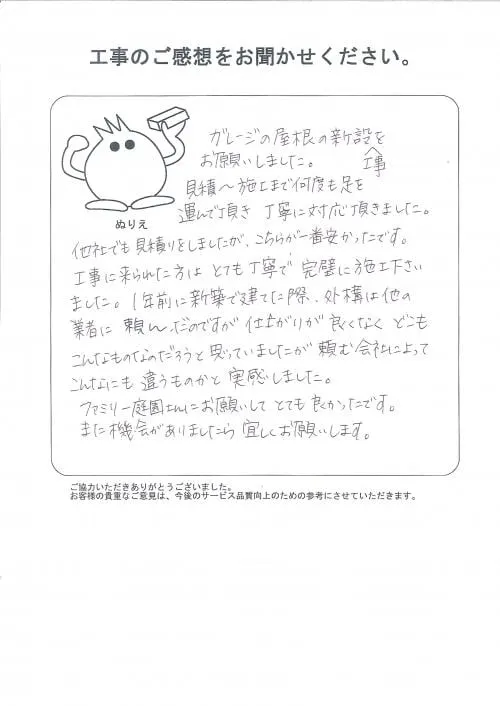 工事のご感想をお聞かせください。
ガレージの屋根の新設工事を
お願いしました。
見積〜施工まで何度も足を
運んで頂き 丁寧に対応頂きました。
ぬりえ
他社でも見積りをしましたが、こちらが一番安かったです。
工事に来られた方は とても丁寧で 完璧に施工下さい
ました。1年前に新築で建てた際、外構は他の
業者に 頼んだのですが 仕上がりが 良くなく どこも
こんなものなのだろうと思っていましたが 頼む会社によって
こんなにも 違うものかと 実感しました。
ファミリー庭園さんにお願いして とても良かったです。
また機会がありましたら 宜しくお願いします。
ご協力いただきありがとうございました。
お客様の貴重なご意見は、今後のサービス品質向上のための参考にさせていただきます。